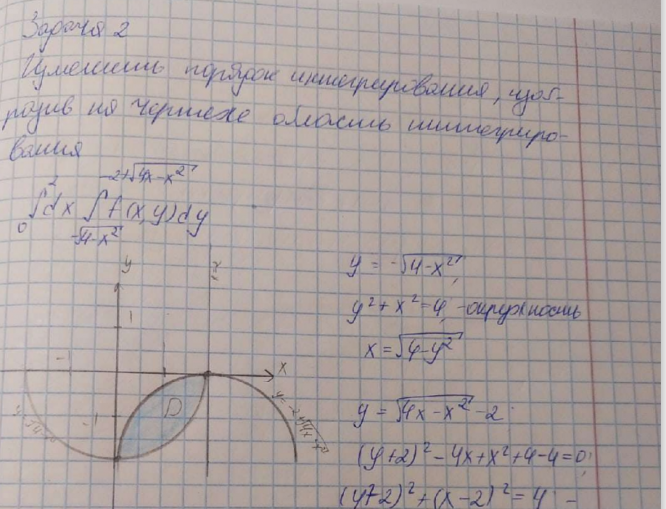 Задача 2
Изменить порядок интегрирования, изоб-
разив на чертеже область интегриро-
вания
∫₀² dx ∫_{-√(4-x²)}^{-2+√(4x-x²)} f(x,y)dy
y = -√(4-x²);
y²+x²=4, -окружность
x = √(4-y²)
y = √(4x-x²) - 2
(y+2)² - 4x+x²+4-4=0;
(y+2)²+(x-2)²=4 -
y
2
1
-1
x
-1
D
y=-2+√(4x-x²)